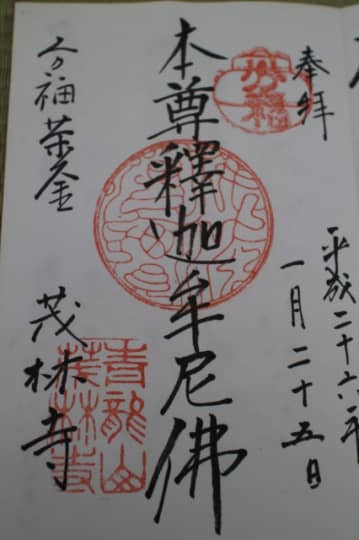 奉拝
平成二十六年
一月二十五日
本尊釋迦牟尼佛
分福茶釜
茂林寺
青龍山
茂林寺